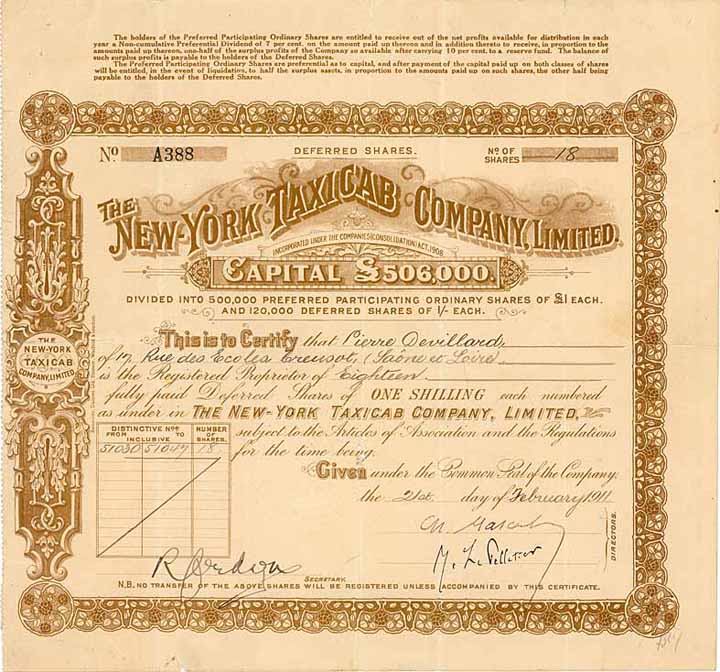 The holders of the Preferred Participating Ordinary Shares are entitled to receive out of the net profits available for distribution in each
year a Non-cumulative Preferential Dividend of 7 per cent. on the amount paid up thereon and in addition thereto to receive, in proportion to the
amounts paid up thereon, one-half of the surplus profits of the Company so available after carrying 10 per cent. to a reserve fund. The balance of
such surplus profits is payable to the holders of the Deferred Shares.
The Preferred Participating Ordinary Shares are preferential as to capital, and after payment of the capital paid up on both classes of shares
will be entitled, in the event of liquidation, to half the surplus assets, in proportion to the amounts paid up on such shares, the other half being
payable to the holders of the Deferred Shares.
No A388 DEFERRED SHARES. No OF SHARES 18
THE NEW-YORK TAXICAB COMPANY, LIMITED.
INCORPORATED UNDER THE COMPANIES (CONSOLIDATION) ACT, 1908
CAPITAL £506,000.
DIVIDED INTO 500,000 PREFERRED PARTICIPATING ORDINARY SHARES OF £1 EACH.
AND 120,000 DEFERRED SHARES OF 1/- EACH.
This is to Certify that Pierre Devillard,
of 17 Rue des Ecoles Creusot, (Saône et Loire)
is the Registered Proprietor of Eighteen
fully paid Deferred Shares of ONE SHILLING each numbered
as under in THE NEW-YORK TAXICAB COMPANY, LIMITED,
subject to the Articles of Association and the Regulations
for the time being.
DISTINCTIVE Nos FROM TO INCLUSIVE
NUMBER OF SHARES.
51030 51047 18
Given under the Common Seal of the Company,
the 21st day of February 1911
DIRECTORS.
M. Le Pelletier
SECRETARY.
N.B. NO TRANSFER OF THE ABOVE SHARES WILL BE REGISTERED UNLESS ACCOMPANIED BY THIS CERTIFICATE.
THE
NEW-YORK
TAXICAB
COMPANY, LIMITED